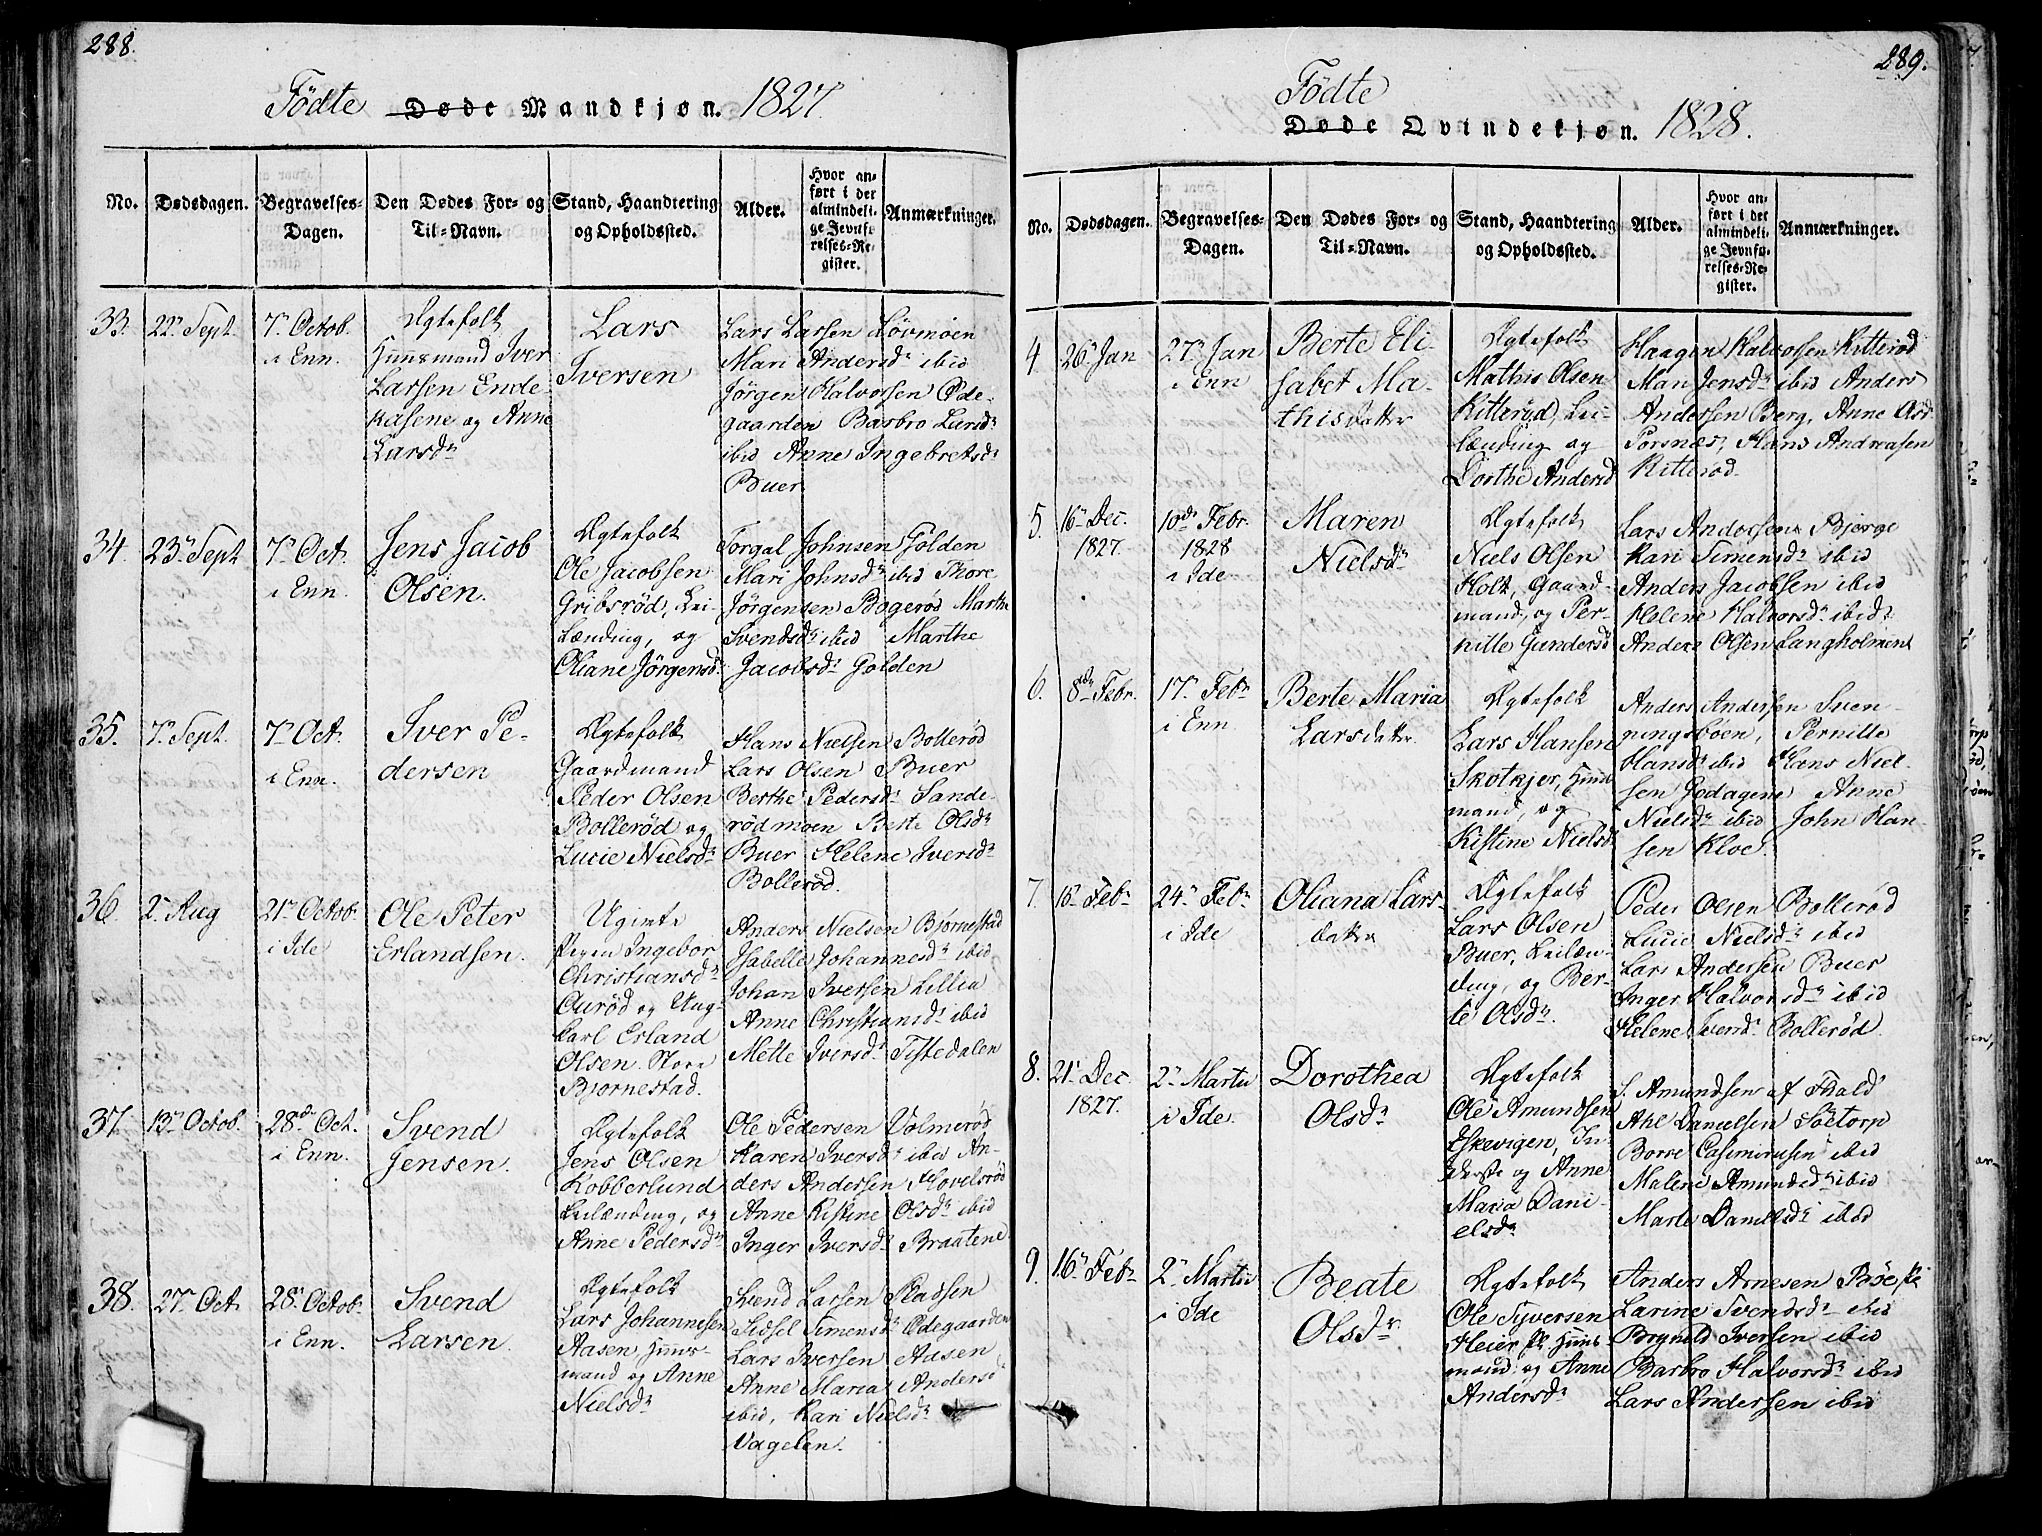 288.
Födte Døde Mandkjøn. 1827.
No.
Dødsdagen.
Begravelses-
Dagen.
Den Dødes For- og
Til-Navn.
Stand, Haandtering
og Opholdssted.
Alder.
Hvor an-
ført i det
almindeli-
ge Jevnfø-
relses-Re-
gister.
Anmærkninger.
33.
22n Sept.
7n Octob.
i Enn.
Ægtefolk
Huusmand Iver
Larsen Ende-
kasene og Anne
Larsdr
Lars
Iversen
Lars Larsen Lövmoen
Mari Andersdr ibid
Jörgen Halvorsen Öde-
gaarden Barbro Larsdr
ibid Anne Ingebretsdr
Buer
34.
23n Sept
7n Oct.
i Enn.
Jens Jacob
Olsen.
Ægtefolk
Ole Jacobsen
Gribsröd, Lei-
lænding, og
Oliane Jörgensdr
Torgal Johnsen Golden
Mari Johnsdr ibid Thore
Jörgensen Bogeröd Marthe
Svendsdr ibid Marthe
Jacobsdr Golden
35.
7n Sept.
7n Oct.
i Enn.
Iver Pe-
dersen
Ægtefolk
Gaardmand
Peder Olsen
Bolleröd og
Lucie Nielsdr
Hans Nielsen Bolleröd
Lars Olsen Buer
Berthe Pedersdr Sande-
rödmoen Berte Olsdr
Buer Helene Iversdr
Bolleröd.
36.
2n Aug
21n Octob.
i Ide
Ole Peter
Erlandsen.
Ugivte
Pigen Ingebor
Christiansdr
Auröd og Ung-
karl Erland
Olsen Store
Bjornestad.
Anders Nielsen Björnestad
Isabelle Johannesdr ibid
Johan Iversen Lillia
Anne Christiansdr ibid
Mette Iversdr Tistedalen
37.
13n Octob.
28de Oct.
i Enn.
Svend
Jensen.
Ægtefolk
Jens Olsen
Kobberlund
Leilænding, og
Anne Pedersdr
Ole Pedersen Volmeröd
Karen Iversdr ibid An-
ders Andersen Hovelsröd
Anne Kistine Olsdr ibid
Inger Iversdr Braatene
38.
27n Oct
28n Octob.
i Enn.
Svend
Larsen
Ægtefolk
Lars Johannesen
Aasen, Huus-
mand og Anne
Nielsdr
Svend Larsen Pladsen
Sidsel Simensdr Ödegaarden
Lars Iversen Aasen
Anne Maria Andersd
ibid, Kari Nielsdr
Vagelen.
289.
Födte
Døde Qvindekjøn. 1828.
No.
Dødsdagen.
Begravelses-
Dagen.
Den Dødes For- og
Til-Navn.
Stand, Haandtering
og Opholdssted.
Alder.
Hvor an-
ført i det
almindeli-
ge Jevnfø-
relses-Re-
gister.
Anmærkninger.
4.
26n Jan
27n Jan
i Enn
Berte Eli-
sabet Ma-
thisdatter
Ægtefolk
Mathis Olsen
Kitteröd, Lei-
lænding og
Dorthe Andersd
Haagen Halvorsen Kitteröd
Mari Jensdr ibid Anders
Andersen Berg, Anne Olsd
Porsnæs, Hans Andreasen
Kitteröd.
5.
16n Dec.
1827.
10de Febr.
1828
i Ide
Maren
Nielsdr
Ægtefolk
Niels Olsen
Holt, Gaard-
mand, og Per-
nille Gundersd
Lars Andersen Bjerge
Kari Simensdr ibid
Anders Jacobsen ibid
Helene Halvorsdr ibid
Anders Olsen Langholmen
6.
8de Febr.
17n Febr
i Enn
Berte Maria
Larsdatter
Ægtefolk
Lars Hansen
Skotkjer, Huus-
mand, og
Kistine Nielsd
Anders Andersen Sven-
ningsböen, Pernille
Hansdr ibid Hans Niel-
sen Godagene Anne
Nielsdr ibid John Han-
sen Kloe.
7.
18n Febr
24n Febr
i Ide
Oliana Lars-
datter
Ægtefolk
Lars Olsen
Buer, Leilæn-
ding, og Ber-
te Olsdr.
Peder Olsen Bolleröd
Lucie Nielsdr ibid
Lars Andersen Buer
Inger Halvorsdr ibid
Helene Iversdr Bolleröd.
8.
21n Dec.
1827.
2n Martii
i Ide.
Dorothea
Olsdr
Ægtefolk
Ole Amundsen
Eskevigen, In-
derste og Anne
Maria Dani-
elsdr
S. Amundsen af Fhald
Ahl Danielsen Söetorp
Borre Casimirusen ibid
Malene Amundsdr ibid
Marte Danielsdr ibid
9.
16n Febr
2n Martii
i Ide
Beate
Olsdr.
Ægtefolk
Ole Syversen
Heier, Huus-
mand, og Anne
Andersdr
Anders Arnesen
Larine Svendsdr ibid
Brynild Iversen ibid
Barbro Halvorsdr ibid
Lars Andersen ibid